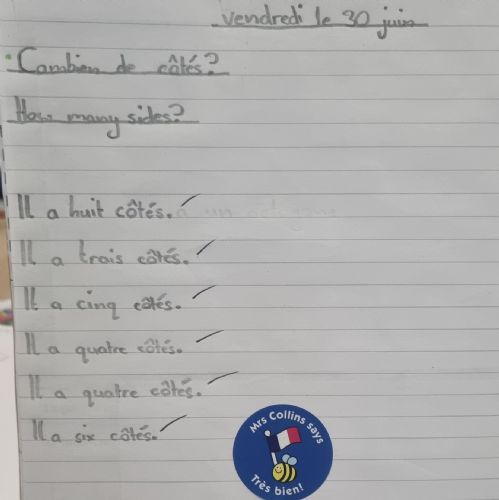 vendredi le 30 juin
Combien de côtés?
How many sides?
Il a huit côtés.
Il a trois côtés.
Il a cinq côtés.
Il a quatre côtés.
Il a quatre côtés.
Il a six côtés.
Mrs Collins says
Très bien!